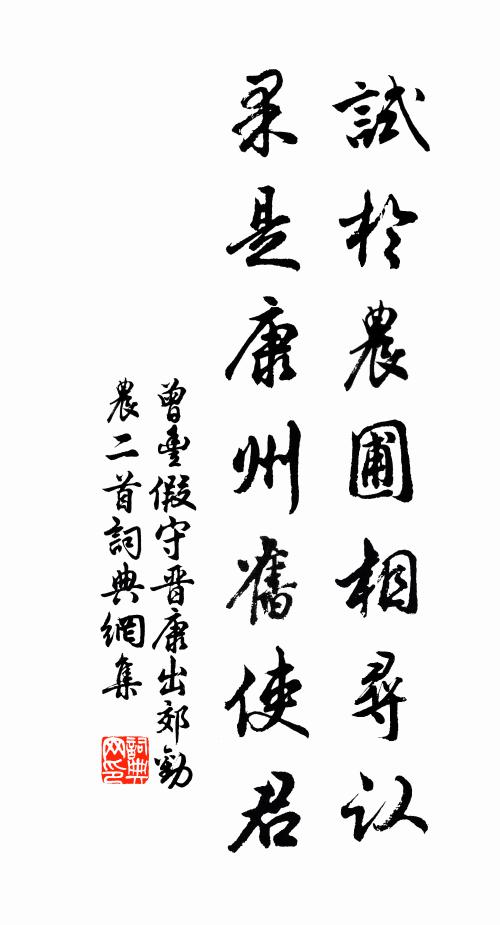 試於農圃相尋認
果是康州舊使君
曾豊假守晋康出郊勸
農二首詞典網集
詞典
網印